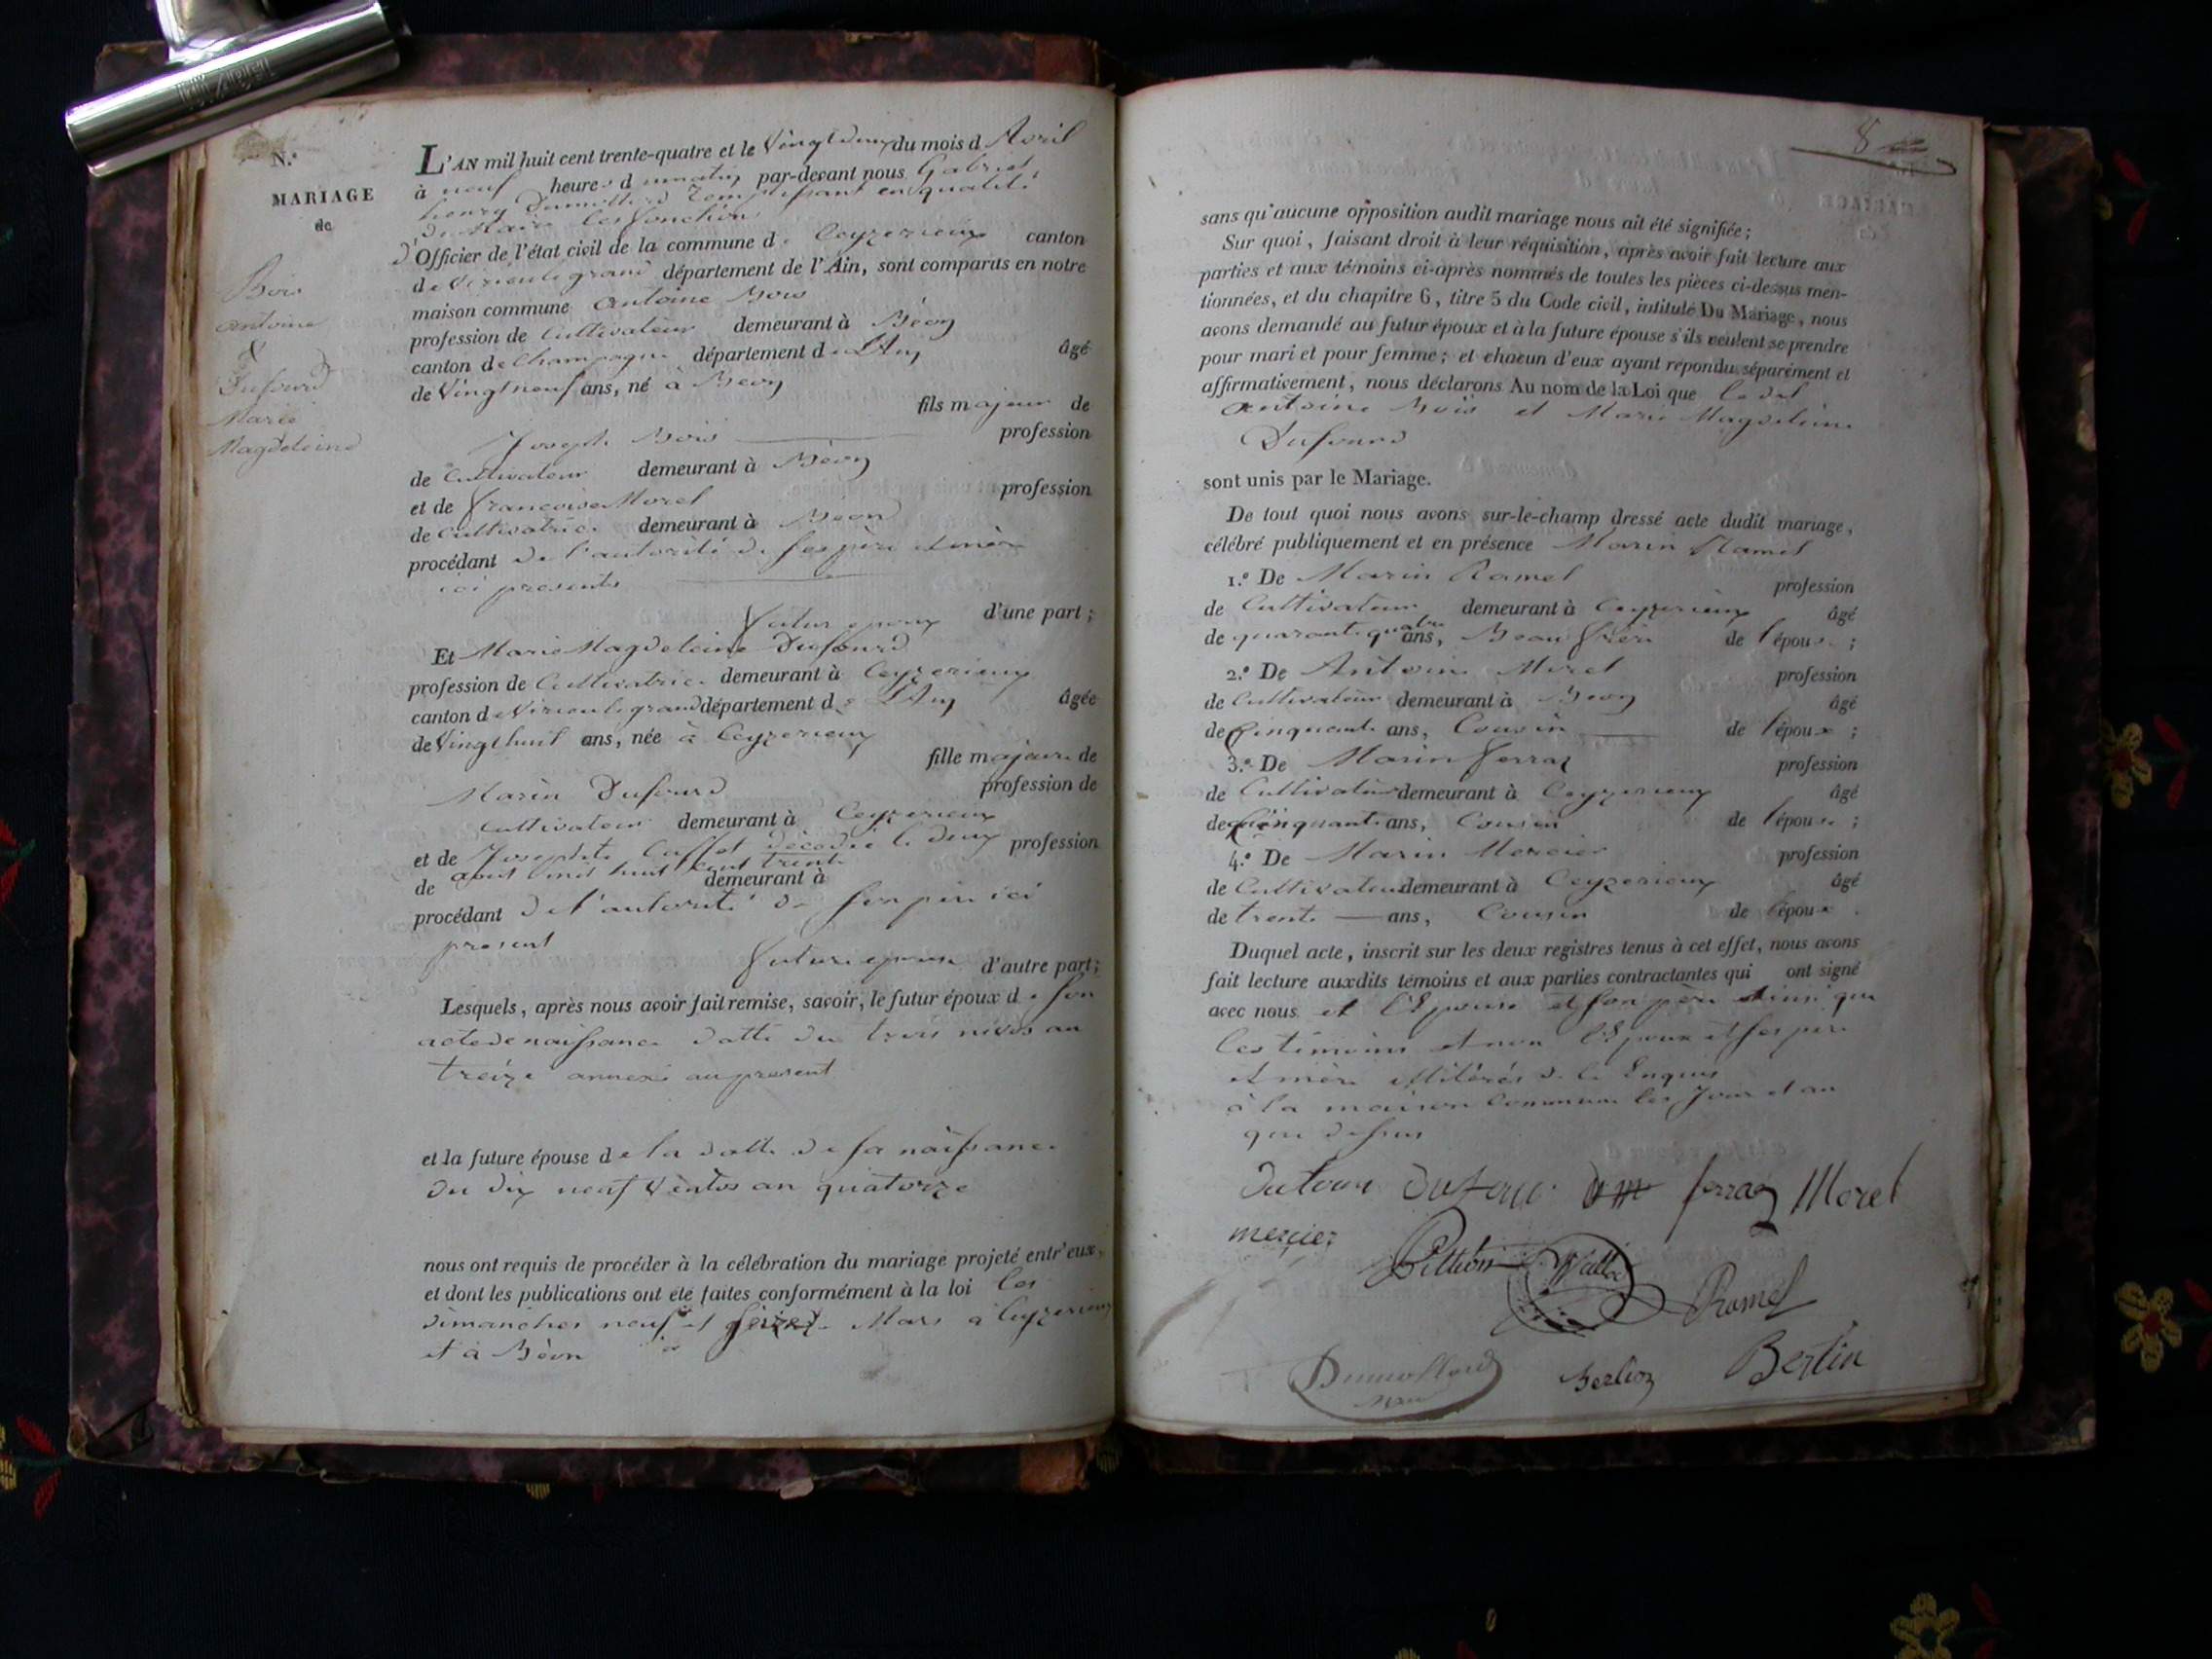 N.º
MARIAGE
de
Bois
antoine
&
Dufourd
Marie
Magdeleine
L'AN mil huit cent trente-quatre et le Vingt deux du mois d Avril
à neuf heures d umatin par-devant nous Gabriel
henry Dumollard Remplissant en qualité
de Maire les fonctions
d'Officier de l'état civil de la commune de Ceyzerieux canton
de Virieu le grand département de l'Ain, sont comparus en notre
maison commune antoine Bois
profession de Cultivateur demeurant à Béon
canton de Champagne département de L'Ain âgé
de Vingt neuf ans, né à Beon
fils majeur de
Joseph Bois profession
de Cultivateur demeurant à Béon
et de francoise Morel profession
de Cultivatrice demeurant à Beon
procédant de l'autorité de ses père et mère
ici presents
futur epoux d'une part ;
Et Marie Magdeleine Dufourd
profession de Cultivatrice demeurant à Ceyzerieux
canton de Virieu le grand département de L'Ain âgée
de Vingt huit ans, née à Ceyzerieux
fille majeure de
Marin Dufourd profession de
Cultivateur demeurant à Ceyzerieux
et de Josephte décédée le deux profession
de aout mil huit cent trente demeurant à
procédant de l'autorité de son père ici
present
future epouse d'autre part ;
Lesquels, après nous avoir fait remise, savoir, le futur époux de son
acte de naissance datté du trois nivos an
treize annexé au present
et la future épouse de la datte de sa naissance
du dix neuf ventos an quatorze
nous ont requis de procéder à la célébration du mariage projeté entr'eux,
et dont les publications ont été faites conformément à la loi les
dimanches neuf et Mars à Ceyzerieux
et à Béon
8
sans qu'aucune opposition audit mariage nous ait été signifiée ;
Sur quoi, faisant droit à leur réquisition, après avoir fait lecture aux
parties et aux témoins ci-après nommés de toutes les pièces ci-dessus men-
tionnées, et du chapitre 6, titre 5 du Code civil, intitulé Du Mariage, nous
avons demandé au futur époux et à la future épouse s'ils veulent se prendre
pour mari et pour femme ; et chacun d'eux ayant répondu séparément et
affirmativement, nous déclarons Au nom de la Loi que le dit
antoine Bois et Marie Magdeleine
Dufourd
sont unis par le Mariage.
De tout quoi nous avons sur-le-champ dressé acte dudit mariage,
célébré publiquement et en présence Marin Ramel
1.º De Marin Ramel profession
de Cultivateur demeurant à Ceyzerieux âgé
de quarant quatre ans, Beau frère de l'épouse ;
2.º De Antoine Morel profession
de Cultivateur demeurant à Beon âgé
de Cinquante ans, Cousin de l'époux ;
3.º De Marin ferraz profession
de Cultivateur demeurant à Ceyzerieux âgé
de Cinquante ans, Cousin de l'épouse ;
4.º De Marin Mercier profession
de Cultivateur demeurant à Ceyzerieux âgé
de trente ans, Cousin de l'époux .
Duquel acte, inscrit sur les deux registres tenus à cet effet, nous avons
fait lecture auxdits témoins et aux parties contractantes qui ont signé
avec nous et l'Epouse et son père ainsi que
les témoins et non l'Epoux et ses père
et mère illitérés de ce Enquis
à la maison Commune les Jour et an
que dessus
Dufour ferraz Morel
mercier Ramel
Dumollard Berlioz Bertin